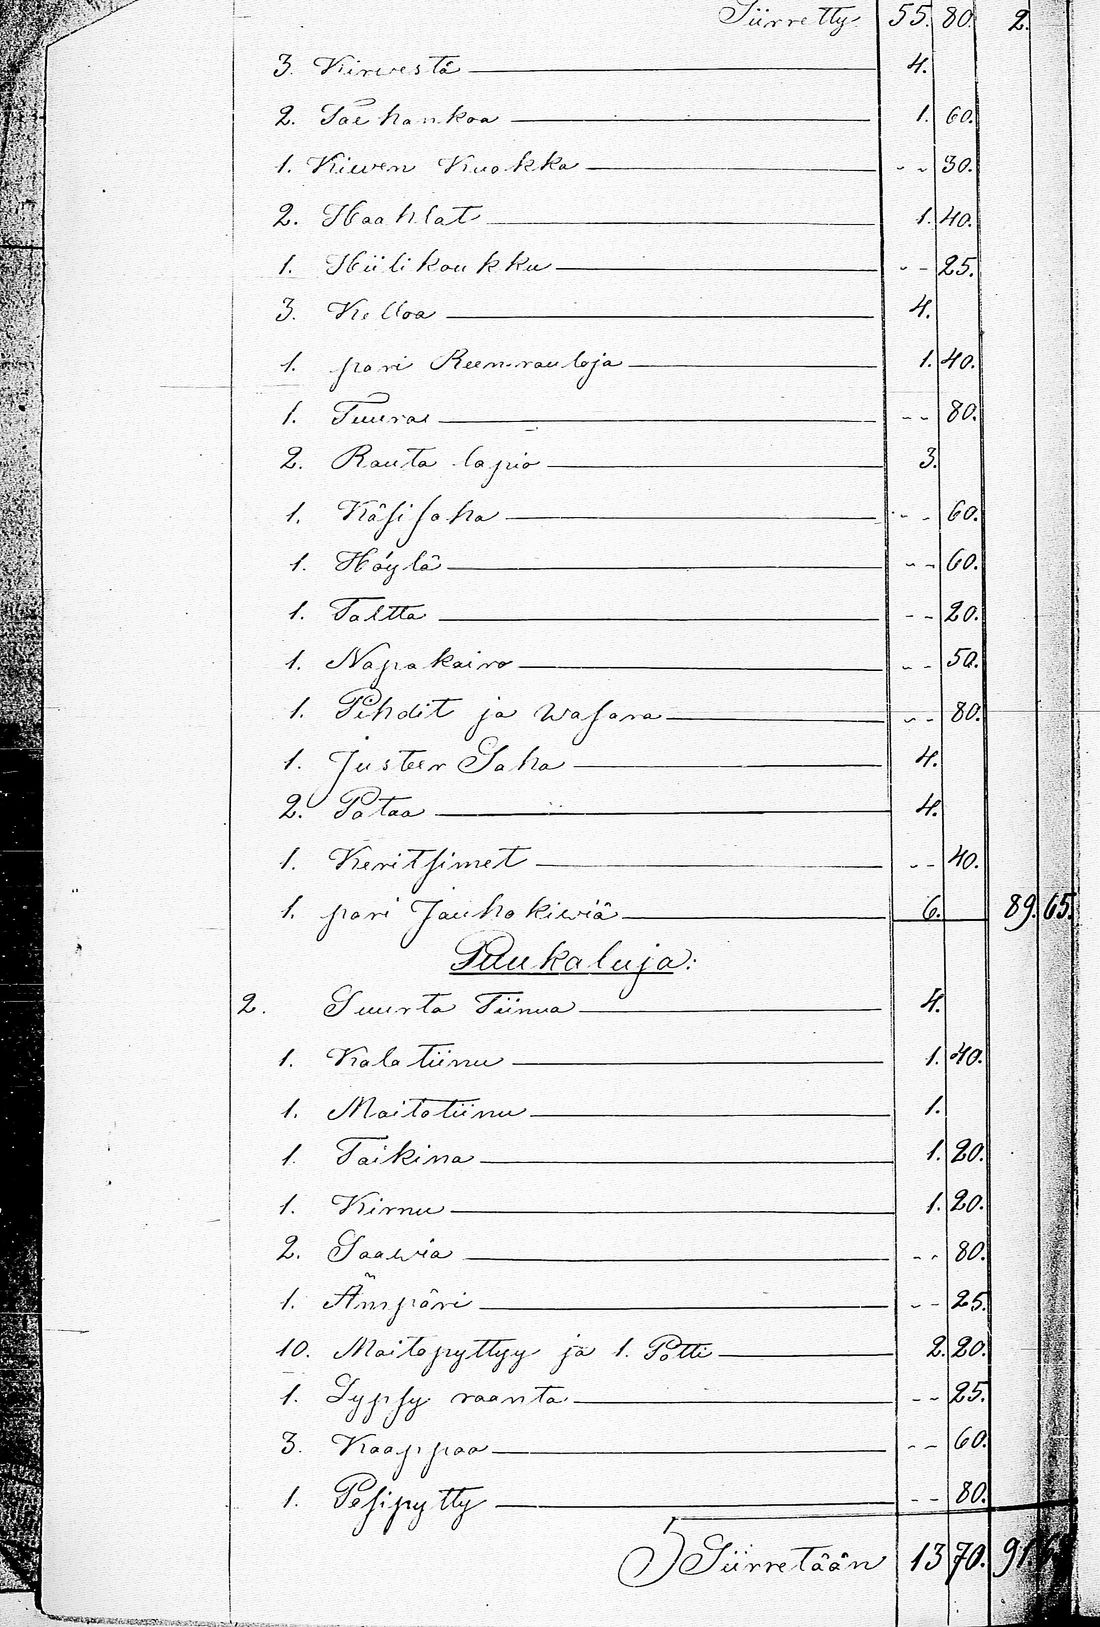 Siirretty 55. 80. 2.
3. Kirvestä 4.
2. Tae hankoa 1. 60.
1. Kiwen Kuokka - - 30.
2. Haahlat 1. 40.
1. Hiili koukku - - 25.
3. Kelloa 4.
1. pari Reen-rautoja 1. 40.
1. Tuuras - - 80.
2. Rauta lapio 3.
1. Käsisaha - - 60.
1. Höylä - - 60.
1. Taltta - - 20.
1. Napakaira - - 50.
1. Pihdit ja wasara - - 80.
1. Justeer Saha 4.
2. Pataa 4.
1. Keritsimet - - 40.
1. pari Jauhokiwiä 6. 89. 65.
Puukaluja:
2. Suurta Tiinua 4.
1. Kalatiinu 1. 40.
1. Maitotiinu 1.
1. Taikina 1. 20.
1. Kirnu 1. 20.
2. Saawia - - 80.
1. Ämpäri - - 25.
10. Maitopyttyy ja 1. Potti 2. 20.
1. Lypsy raanta - - 25.
3. Kaappaa - - 60.
1. Pesipytty - - 80.
Siirretään 13 70. 91